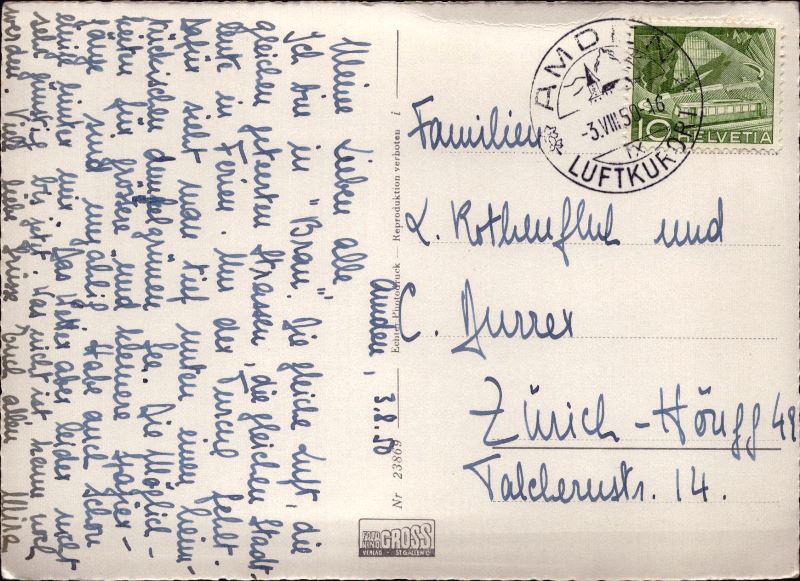 Amden, 3.8.50
Meine Lieben alle
Ich bin in "Brau". Die gleiche Luft, die
gleichen geteerten Strassen, die gleichen Stadt-
leute in Ferien. Nur der Turche fehlt.
Dafür sieht man tief unten einen heim-
tückischen dunkelgrünen See. Die Möglich-
keiten für grössere und kleinere Spazier-
gänge sind unzählig. Habe auch schon
einige hinter mir. Das Wetter aber leider nicht
sehr günstig bis jetzt. Was nicht ist kann noch
werden. Viele liebe Grüsse Euch allen
Echter Photodruck — Reproduktion verboten i
Nr 23869
FOTO GROSS
VERLAG · ST. GALLEN
AMDEN
-3.VIII.50.-16
LUFTKURORT
10
HELVETIA
Familien
L. Rothenfluh und
C. Durrer
Zürich-Höngg 49
Talchernstr. 14.